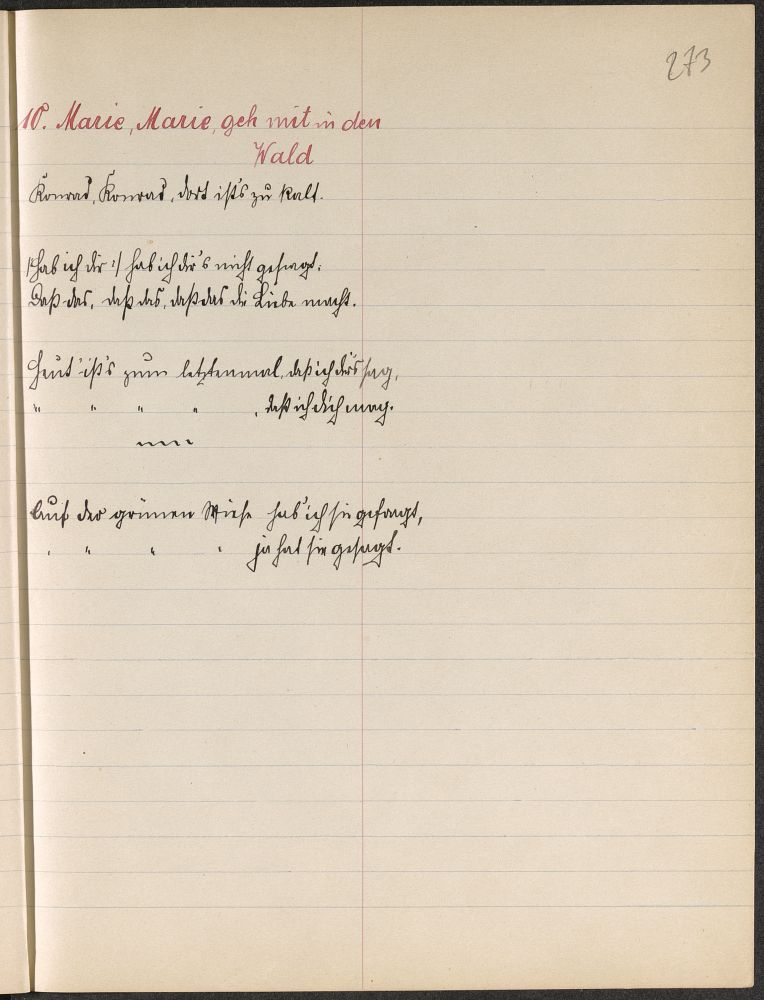 273
10. Marie, Marie, geh mit in den
Wald
Konrad, Konrad, dort ist's zu kalt.
|: Hab ich dir :| hab ich dir's nicht gesagt:
Daß das, daß das, daß das die Liebe macht.
Heut' ist's zum letztenmal, daß ich dir's sag,
" " " " , daß ich dich mag.
Auf der grünen Wiese hab' ich sie gefragt,
" " " " ja hat sie gesagt.